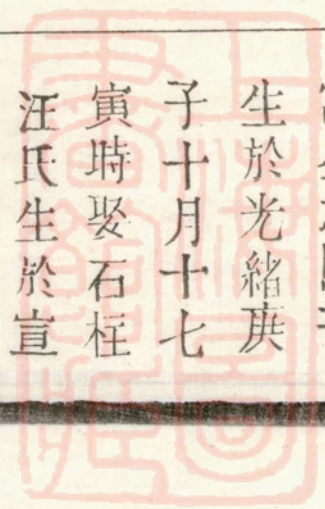 生於光緒庚
子十月十七
寅時娶石柱
汪氏生於宣